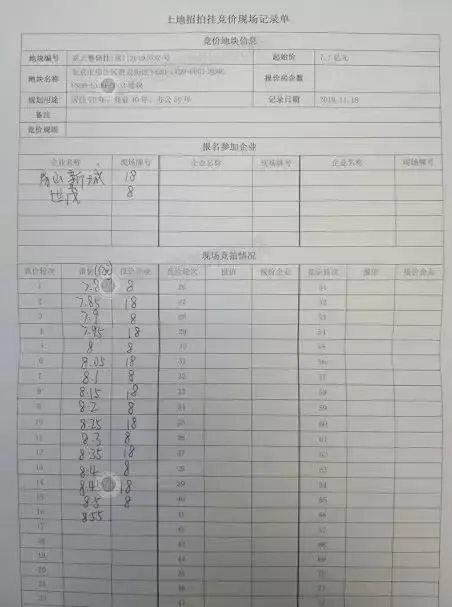 土地招拍挂竞价现场记录单
竞价地块信息
地块编号 起始价 7.7亿元
地块名称 报价房企数
规划用途 住宅70年、商业40年、办公50年 记录日期 2019.11.18
备注
竞价规则
报名参加企业
企业名称 现场牌号 企业名称 现场牌号 企业名称 现场牌号
新城 18
世茂 8
现场竞拍情况
竞价轮次 报价(亿) 报价企业 竞价轮次 报价 报价企业 竞价轮次 报价 报价企业
1 8 26 51
2 7.85 18 27 52
3 7.9 8 28 53
4 7.95 18 29 54
5 8 8 30 55
6 8.05 18 31 56
7 8.1 8 32 57
8 8.15 18 33 58
9 8.2 8 34 59
10 8.25 18 35 60
11 8.3 8 36 61
12 8.35 18 37 62
13 8.4 8 38 63
14 8.45 18 39 64
15 8.5 8 40 65
16 8.55 41 66
17 42 67
18 43 68
19 44 69
20 45 70
21 46 71